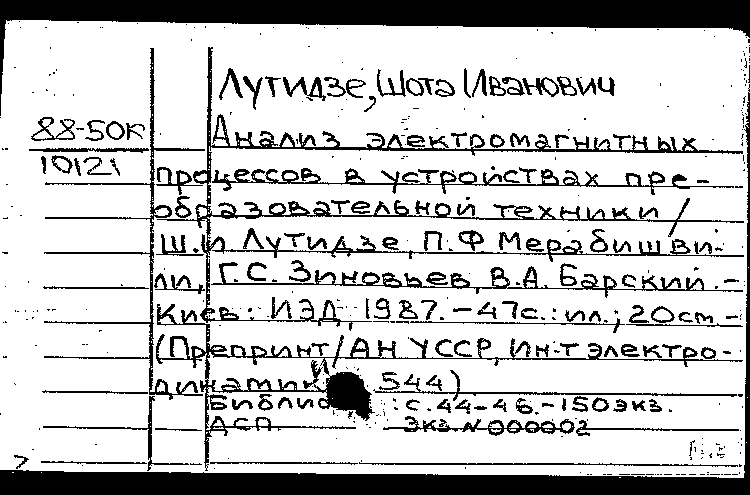 Лутидзе, Шота Иванович
88-50К Анализ электромагнитных
10121 процессов в устройствах пре-
образовательной техники /
Ш.И. Лутидзе, П.Ф. Мерабишви-
ли, Г.С. Зиновьев, В.А. Барский. -
Киев: ИЭД, 1987. - 47с.: ил.; 20см -
(Препринт / АН УССР, Ин-т электро-
динамики 544)
: с. 44-46. - 150экз.
ДСП. Экз. N 000002